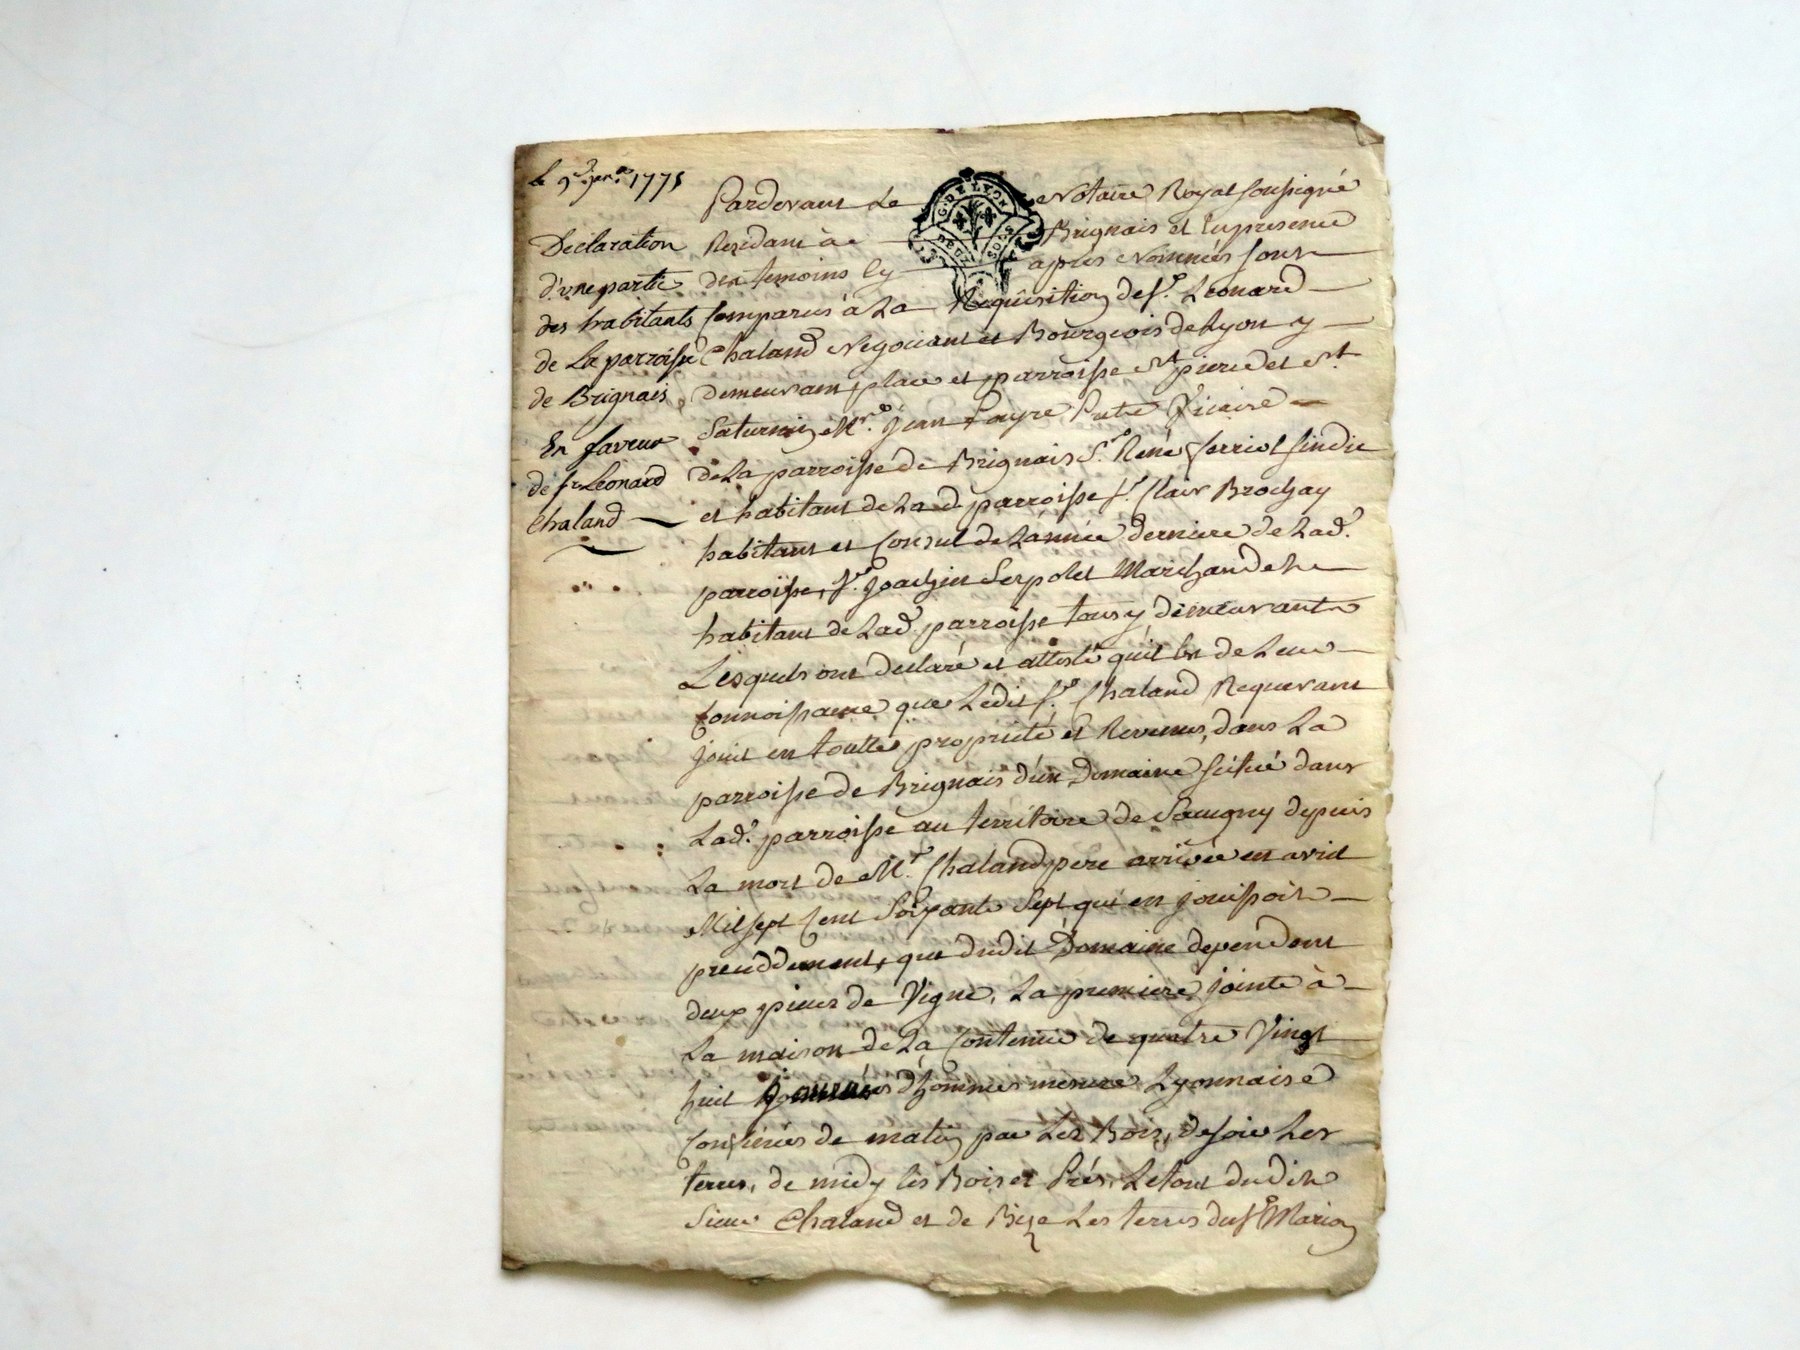 Le 9e Janr. 1775
Declaration
d'une partie
des habitants
de La parroisse
de Brignais
En faveur
de sr. Léonard
Chaland
Pardevant Le Notaire Royal soussigné
Residant à Brignais et En presence
des temoins Cy après Nommés sont
Comparus à La Requisition de Sr. Leonard
Chaland Negociant et Bourgeois de Lyon y
demeurant place et parroisse St. pierre et St.
Saturnin Mre. Jean Prètre Vicaire
de La parroisse de Brignais Sr. René ferriol sindic
et habitant de Lad. parroisse Sr. Clair Brochay
habitant et Consul de L'année derniere de Lad.
parroisse, Sr. Joachim Serpolet Marchand et
habitant de Lad. parroisse tous y demeurants
Lesquels ont declaré et attesté qu'il est de Leur
Connoissance que Ledit Sr. Chaland Requerant
jouit en toutte propriété et Revenus, dans La
parroisse de Brignais d'un Domaine scitué dans
Lad. parroisse au territoire de Sacugny depuis
La mort de Mr. Chaland pere arrivée en avril
Mil sept Cent Soixante Sept qui en jouissoit
precedement, que dudit Domaine dependent
deux pieces de Vigne, La premiere jointe à
La maison de La Contenue de quatre Vingt
huit journées d'hommes mesure Lyonnaise
Confinées de matin par Les Bois, de soir Les
terres, de midy les Bois et Prés, Le tout dudit
Sieur Chaland et de Bize Les terres du Sr. Marion
G. DE LYON